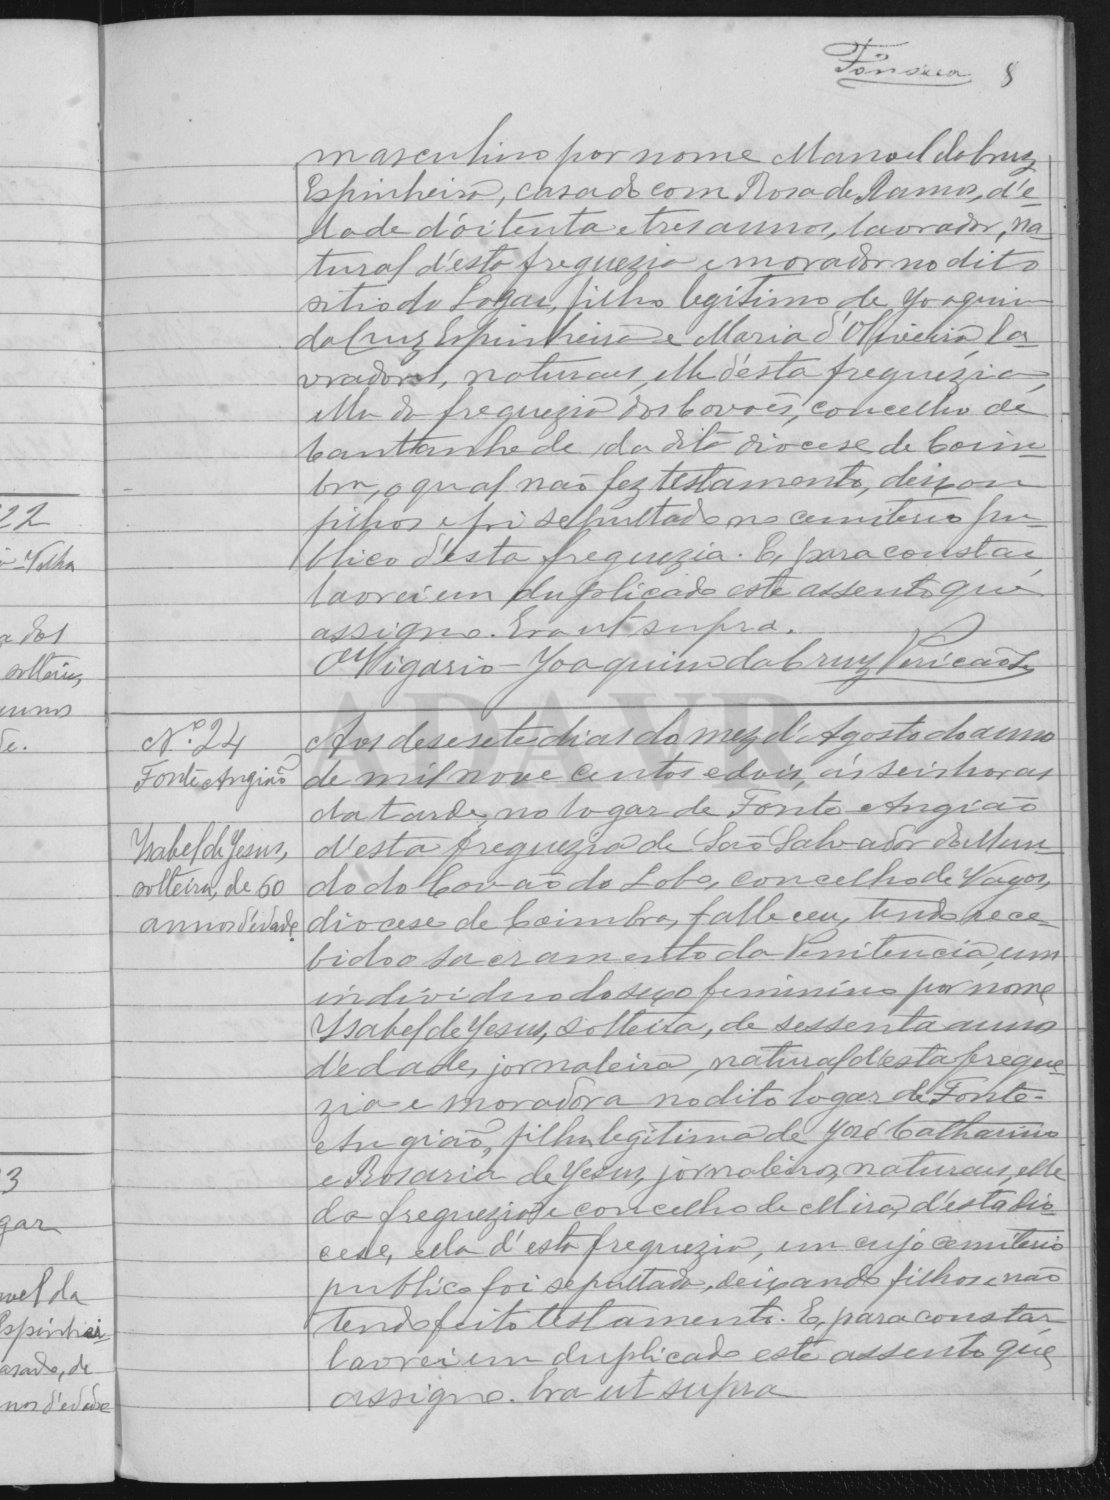 Fonseca 8
masculino por nome Manoel da Cruz
Espinheiro, casado com Rosa de Ramos, d'e-
dade d'oitenta e tres annos, lavrador, na-
tural d'esta freguezia e morador no dito
sitio do Logar, filho legitimo de Joaquim
da Cruz Espinheiro e Maria d'Oliveira, la-
vradores, naturaes, elle d'esta freguezia,
ella da freguezia dos Covões, concelho de
Cantanhede, da dita diocese de Coim-
bra, o qual não fez testamento, deixou
filhos e foi sepultado no cemiterio pu-
blico d'esta freguezia. E, para constar,
lavrei em duplicado este assento que
assigno. Era ut supra.
O Vigario - Joaquim da Cruz Pericão
ADAVR
22
Velha
solteiro,
annos
de.
N.º 24
Fonte Angião
Isabel de Jesus,
solteira, de 60
annos d'edade
Aos desesete dias do mez d'Agosto do anno
de mil nove centos e dois, ás seis horas
da tarde, no logar de Fonte Angião
d'esta freguezia de São Salvador do Mun-
do do Covão do Lobo, concelho de Vagos,
diocese de Coimbra, falleceu, tendo rece-
bido o sacramento da Penitencia, um
individuo do sexo feminino por nome
Ysabel de Jesus, solteira, de sessenta annos
d'edade, jornaleira, natural d'esta fregue-
zia e moradora no dito logar de Fonte-
Angião, filha legitima de José Catharino
e Rosaria de Jesus, jornaleiros, naturaes, elle
da freguezia e concelho de Mira, d'esta dio-
cese, ella d'esta freguezia, em cujo cemiterio
publico foi sepultada, deixando filhos e não
tendo feito testamento. E, para constar
lavrei em duplicado este assento que
assigno. Era ut supra
3
gar
noel da
Espinhei-
asado, de
nos d'edade